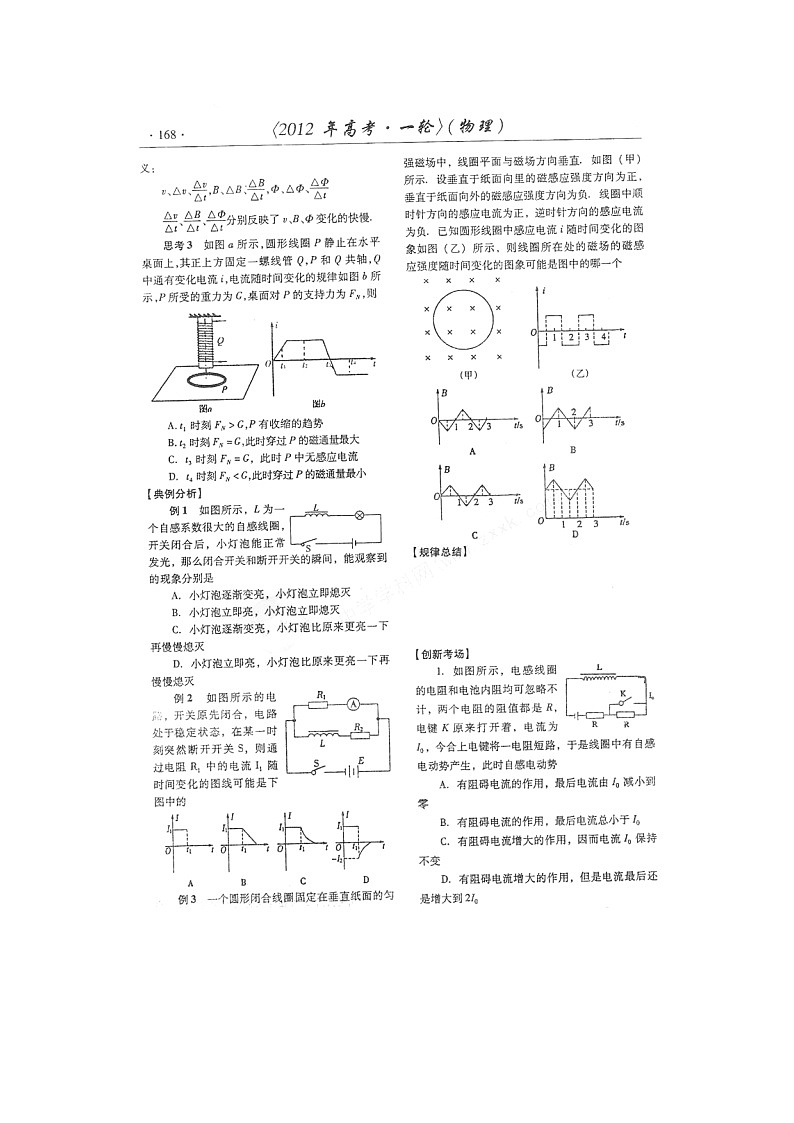 · 168 ·
〈2012 年高考·一轮〉(物理)
义:
v、△v、△v/△t,B、△B、△B/△t,Φ、△Φ、△Φ/△t
△v/△t、△B/△t、△Φ/△t分别反映了 v、B、Φ 变化的快慢.
思考 3 如图 a 所示,圆形线圈 P 静止在水平
桌面上,其正上方固定一螺线管 Q,P 和 Q 共轴,Q
中通有变化电流 i,电流随时间变化的规律如图 b 所
示,P 所受的重力为 G,桌面对 P 的支持力为 F_N,则
Q
P
图a
i
O t₁ t₂ t₃ t₄ t
图b
A. t₁ 时刻 F_N > G,P 有收缩的趋势
B. t₂ 时刻 F_N = G,此时穿过 P 的磁通量最大
C. t₃ 时刻 F_N = G，此时 P 中无感应电流
D. t₄ 时刻 F_N < G,此时穿过 P 的磁通量最小
【典例分析】
例 1 如图所示，L 为一
个自感系数很大的自感线圈，
开关闭合后，小灯泡能正常
发光，那么闭合开关和断开开关的瞬间，能观察到
的现象分别是
L
S
A．小灯泡逐渐变亮，小灯泡立即熄灭
B．小灯泡立即亮，小灯泡立即熄灭
C．小灯泡逐渐变亮，小灯泡比原来更亮一下
再慢慢熄灭
D．小灯泡立即亮，小灯泡比原来更亮一下再
慢慢熄灭
例 2 如图所示的电
路，开关原先闭合，电路
处于稳定状态，在某一时
刻突然断开开关 S，则通
过电阻 R₁ 中的电流 I₁ 随
时间变化的图线可能是下
图中的
R₁
A
L
R₂
S
E
I I₁ O t₁ t
I I₁ O t₁ t
I I₁ O t₁ t
I I₁ O t₁ t -I₂
A B C D
例 3 一个圆形闭合线圈固定在垂直纸面的匀
强磁场中，线圈平面与磁场方向垂直．如图（甲）
所示．设垂直于纸面向里的磁感应强度方向为正，
垂直于纸面向外的磁感应强度方向为负．线圈中顺
时针方向的感应电流为正，逆时针方向的感应电流
为负．已知圆形线圈中感应电流 i 随时间变化的图
象如图（乙）所示，则线圈所在处的磁场的磁感
应强度随时间变化的图象可能是图中的哪一个
(甲)
i
O 1 2 3 4 t
(乙)
B O 1 2 3 t/s
A
B O 1 2 3 t/s
B
B O 1 2 3 t/s
C
B O 1 2 3 t/s
D
【规律总结】
【创新考场】
1．如图所示，电感线圈
的电阻和电池内阻均可忽略不
计，两个电阻的阻值都是 R，
电键 K 原来打开着，电流为
I₀，今合上电键将一电阻短路，于是线圈中有自感
电动势产生，此时自感电动势
L
K
I₀
R R
A．有阻碍电流的作用，最后电流由 I₀ 减小到
零
B．有阻碍电流的作用，最后电流总小于 I₀
C．有阻碍电流增大的作用，因而电流 I₀ 保持
不变
D．有阻碍电流增大的作用，但是电流最后还
是增大到 2I₀